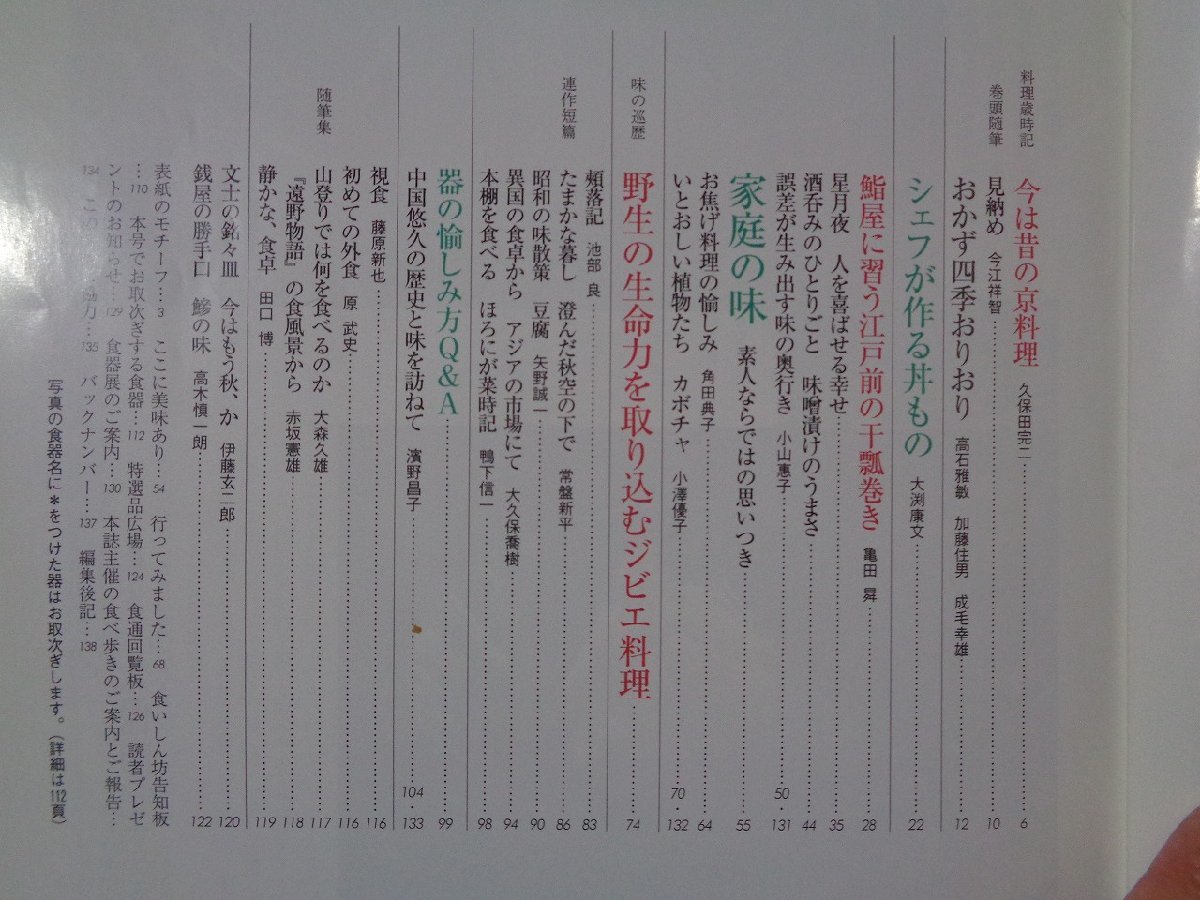 料理歳時記
今は昔の京料理 久保田完二……6
巻頭随筆
見納め 今江祥智……10
おかず四季おりおり 高石雅敏 加藤住男 成毛幸雄……12
シェフが作る丼もの 大渕康文……22
鮨屋に習う江戸前の干瓢巻き 亀田 昇……28
星月夜 人を喜ばせる幸せ……35
酒呑みのひとりごと 味噌漬けのうまさ……44
誤差が生み出す味の奥行き 小山惠子……50 131
家庭の味 素人ならではの思いつき……55
お焦げ料理の愉しみ 角田典子……64
いとおしい植物たち カボチャ 小澤優子……70 132
味の巡歴
野生の生命力を取り込むジビエ料理……74
連作短篇
頰落記 池部 良……83
たまかな暮し 澄んだ秋空の下で 常盤新平……86
昭和の味散策 豆腐 矢野誠一……90
異国の食卓から アジアの市場にて 大久保喬樹……94
本棚を食べる ほろにが菜時記 鴨下信一……98
器の愉しみ方Q&A……99
中国悠久の歴史と味を訪ねて 濱野昌子……104 133
随筆集
視食 藤原新也……116
初めての外食 原 武史……116
山登りでは何を食べるのか 大森久雄……117
『遠野物語』の食風景から 赤坂憲雄……118
静かな、食卓 田口 博……119
文士の銘々皿 今はもう秋、か 伊藤玄二郎……120
銭屋の勝手口 鰺の味 高木慎一朗……122
表紙のモチーフ…3 ここに美味あり…54 行ってみました…68 食いしん坊告知板
…110 本号でお取次ぎする食器…112 特選品広場…124 食通回覧板…126 読者プレゼ
ントのお知らせ…129 食器展のご案内…130 本誌主催の食べ歩きのご案内とご報告…
134 この 協力…135 バックナンバー…137 編集後記…138
写真の食器名に*をつけた器はお取次ぎします。(詳細は112頁)